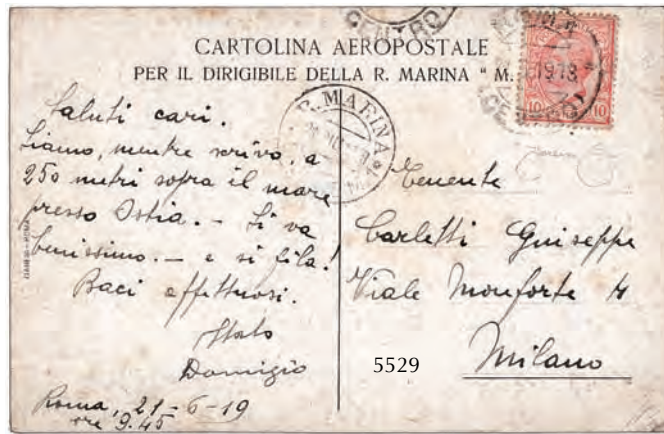 CENTRO
CARTOLINA AEROPOSTALE
PER IL DIRIGIBILE DELLA R. MARINA " M.
1918
10 10
R. MARINA
Saluti cari.
Siamo, mentre scrivo, a
250 metri sopra il mare
presso Ostia. - Si va
benissimo. - e si fila!
Baci affettuosi.
Italo
Roma, 21-6-19
ore 9.45
Tenente
Carletti Guiseppe
Viale Monforte
Milano
5529